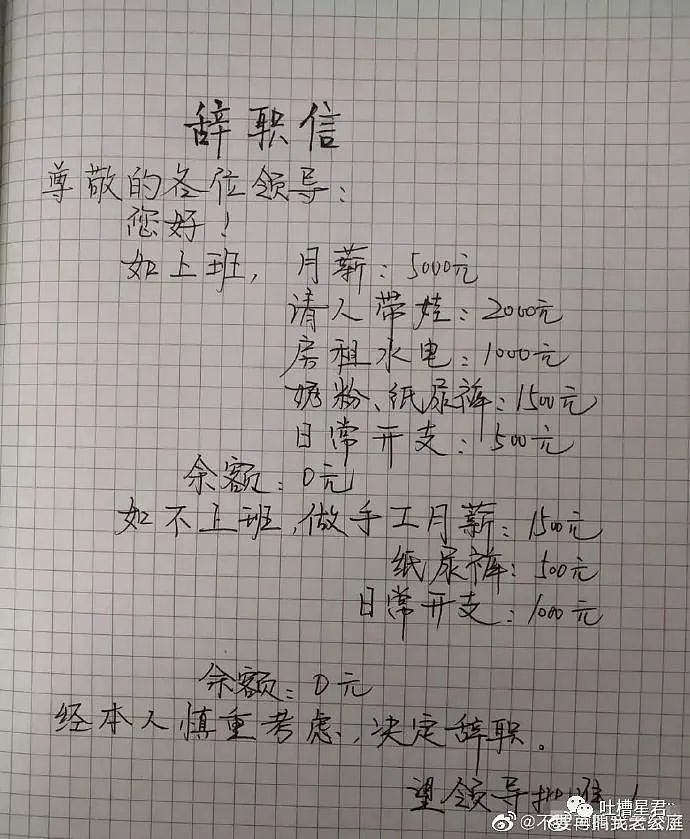 辞职信
尊敬的各位领导:
您好!
如上班, 月薪: 5000元
请人带娃: 2000元
房租水电: 1000元
奶粉、纸尿裤: 1500元
日常开支: 500元
余额: 0元
如不上班, 做手工月薪: 1500元
纸尿裤: 500元
日常开支: 1000元
余额: 0元
经本人慎重考虑, 决定辞职。
望领导批准!
吐槽星君
@不要再哨我老公庭